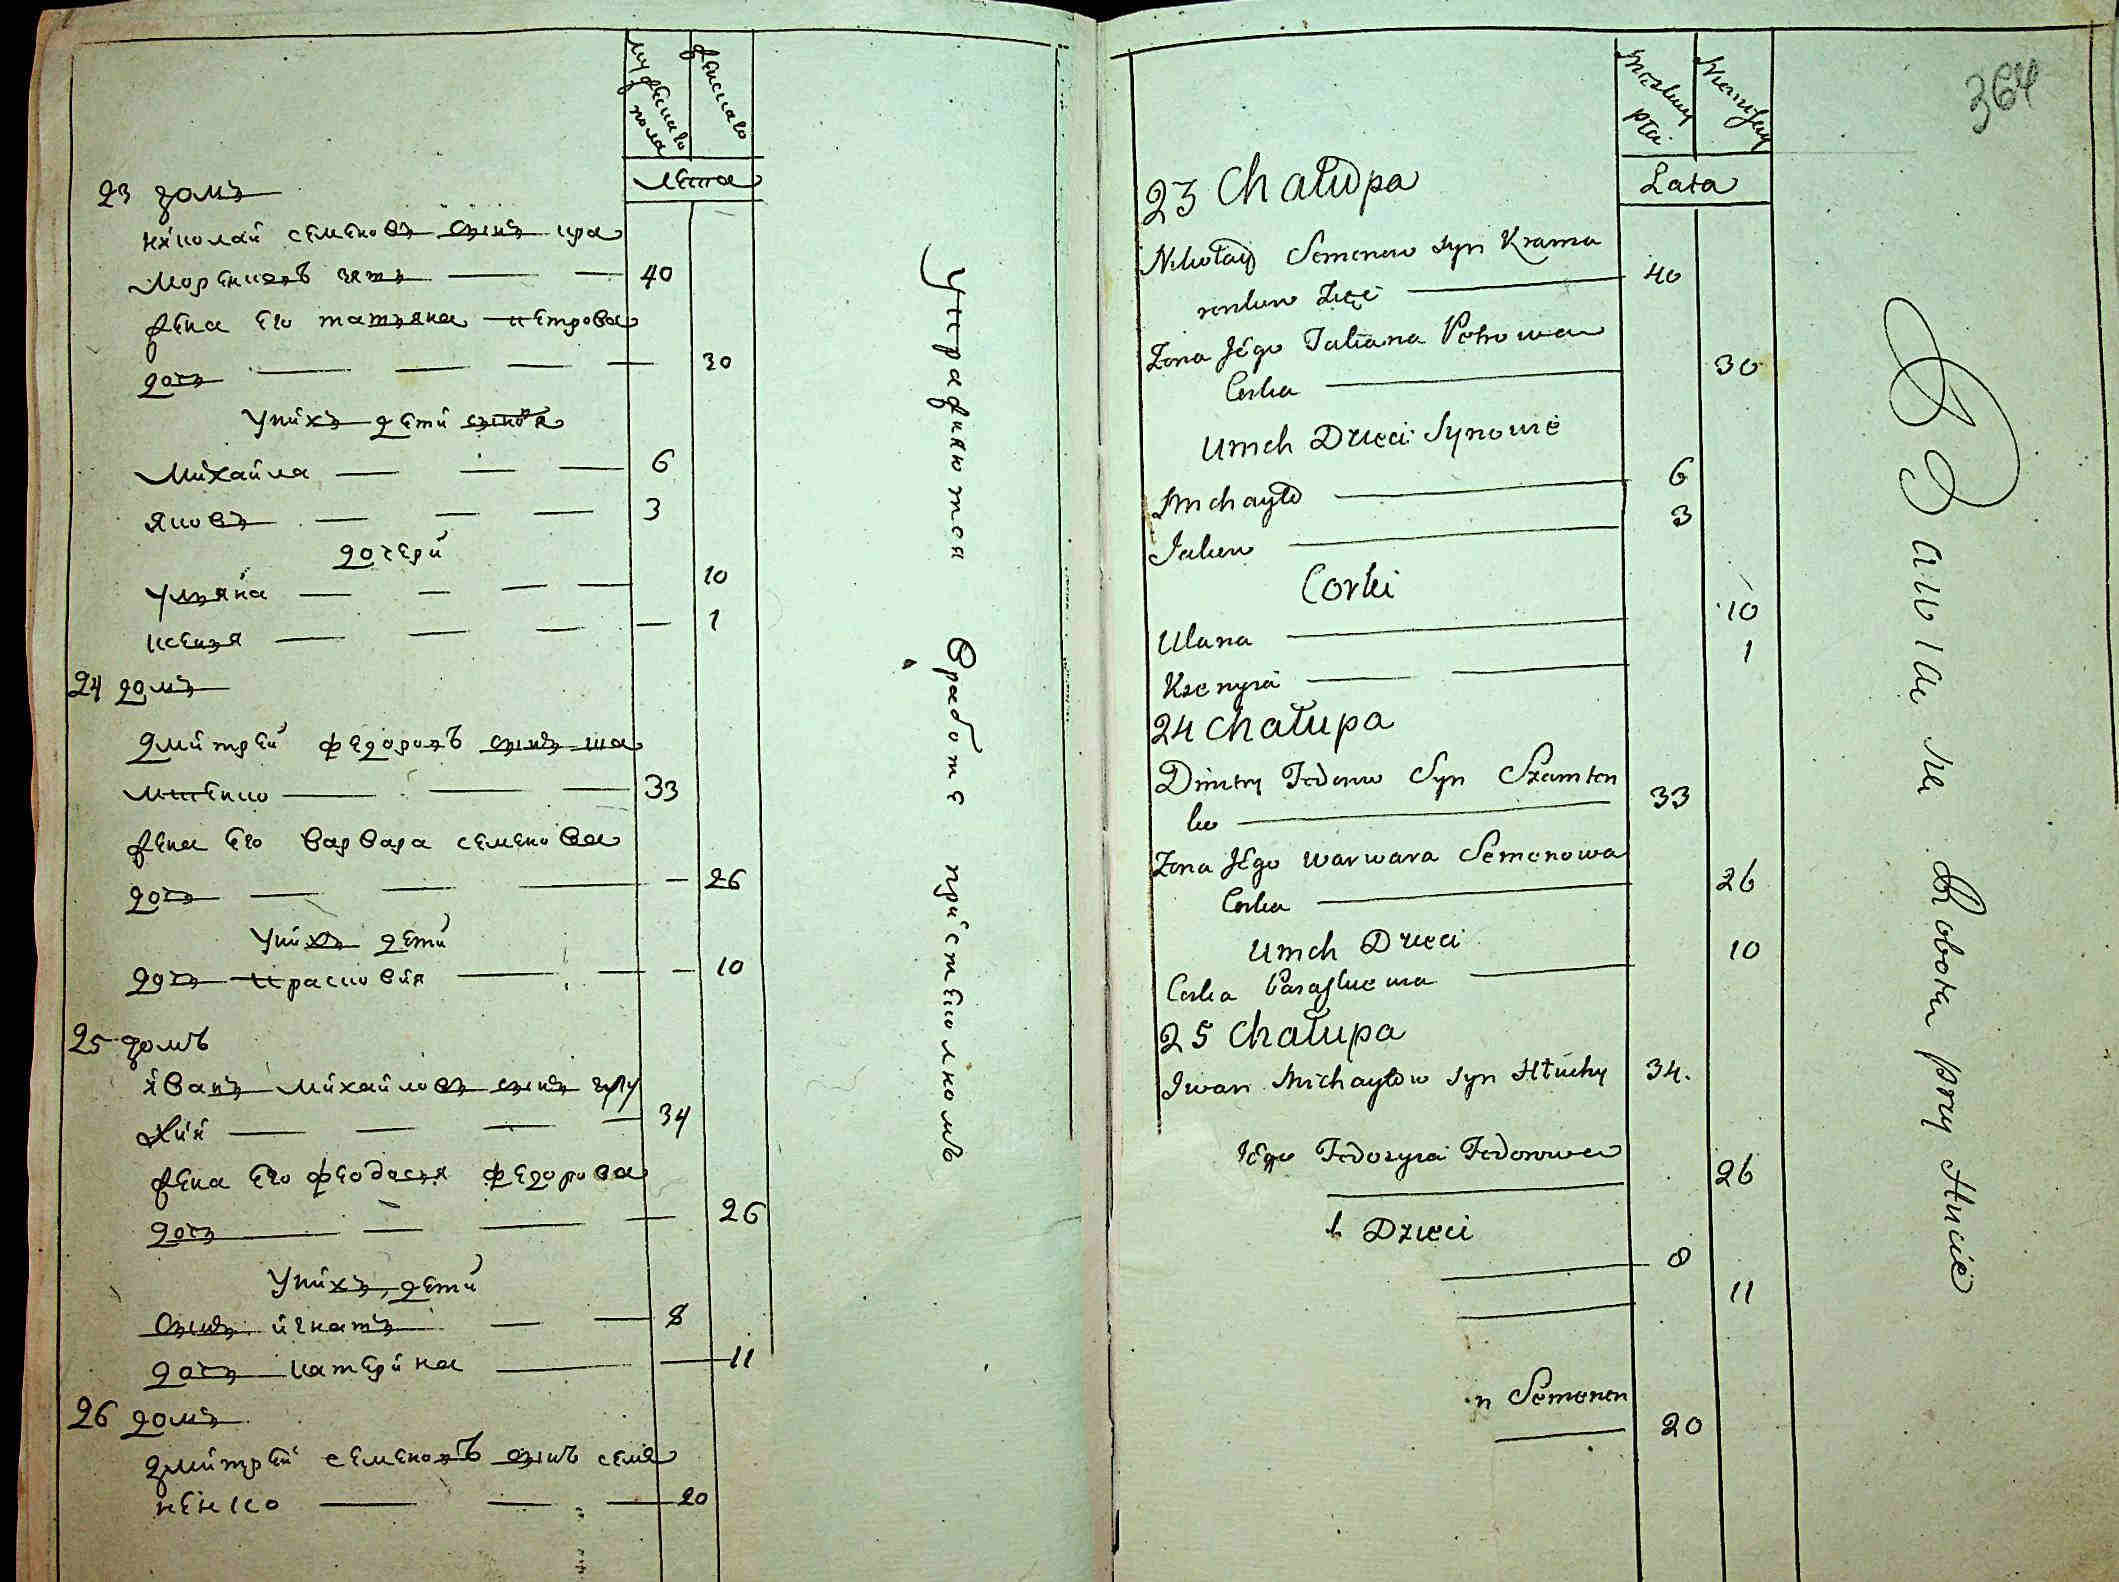 мужеска пола
женска
лета
23 домъ
николай семеновъ сынъ кра
моренковъ зять 40
жена его татьяна петрова
дочь 30
У них дети сыновя
михайла 6
яковъ 3
дочери
Ульяна 10
ксенья 1
24 домъ
дмитрей федоровъ сынъ ша
мтенко 33
жена его варвара семенова
дочь 26
У нихъ дети
дочь прасковия 10
25 домъ
иванъ михайловъ сынъ глу
хий 34
жена его феодосья федорова
дочь 26
У нихъ дети
сынъ игнатъ 8
дочь катерина 11
26 домъ
дмитрей семеновъ сынъ семе
ненко 20
Упражняются в работе при стеколномъ
364
Męzkiey płci
Lata
23 Chałupa
Nikołay Semenow syn Krama
renkow Zięć 40
Zona Jégo Tatiana Petrowa
Corka 30
U nich Dzieci Synowie
Michayło 6
Jakow 3
Corki
Ulana 10
Xzenyia 1
24 Chałupa
Dimitry Fedorow Syn Szamten
ko 33
Zona Jégo Warwara Semenowa
Corka 26
U nich Dzieci
Corka Paraskiewia 10
25 Chałupa
Iwan Michayłow Syn Hłuchy 34.
Jégo Fedozyia Fedorowa
26
h Dzieci
8
11
n Semenen
20
Zawiaie na Robota przy Hucie